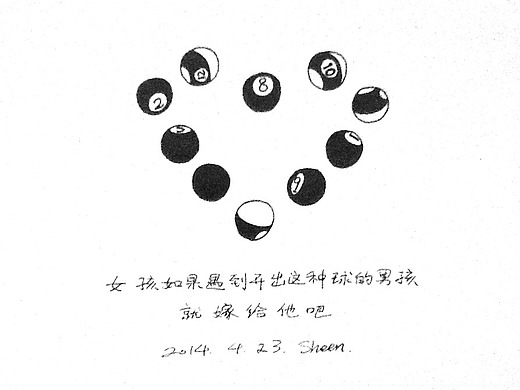 8
10
2
5
女孩如果遇到开出这种球的男孩
就嫁给他吧
2014. 4. 23. Sheen.